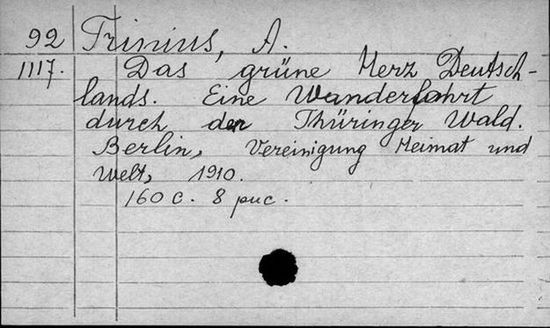 92 Trinius, A.
1117. Das grüne Herz Deutsch-
lands. Eine Wanderfahrt
durch den Thüringer Wald.
Berlin, Vereinigung Heimat und
Welt, 1910.
160 c. 8 рис.